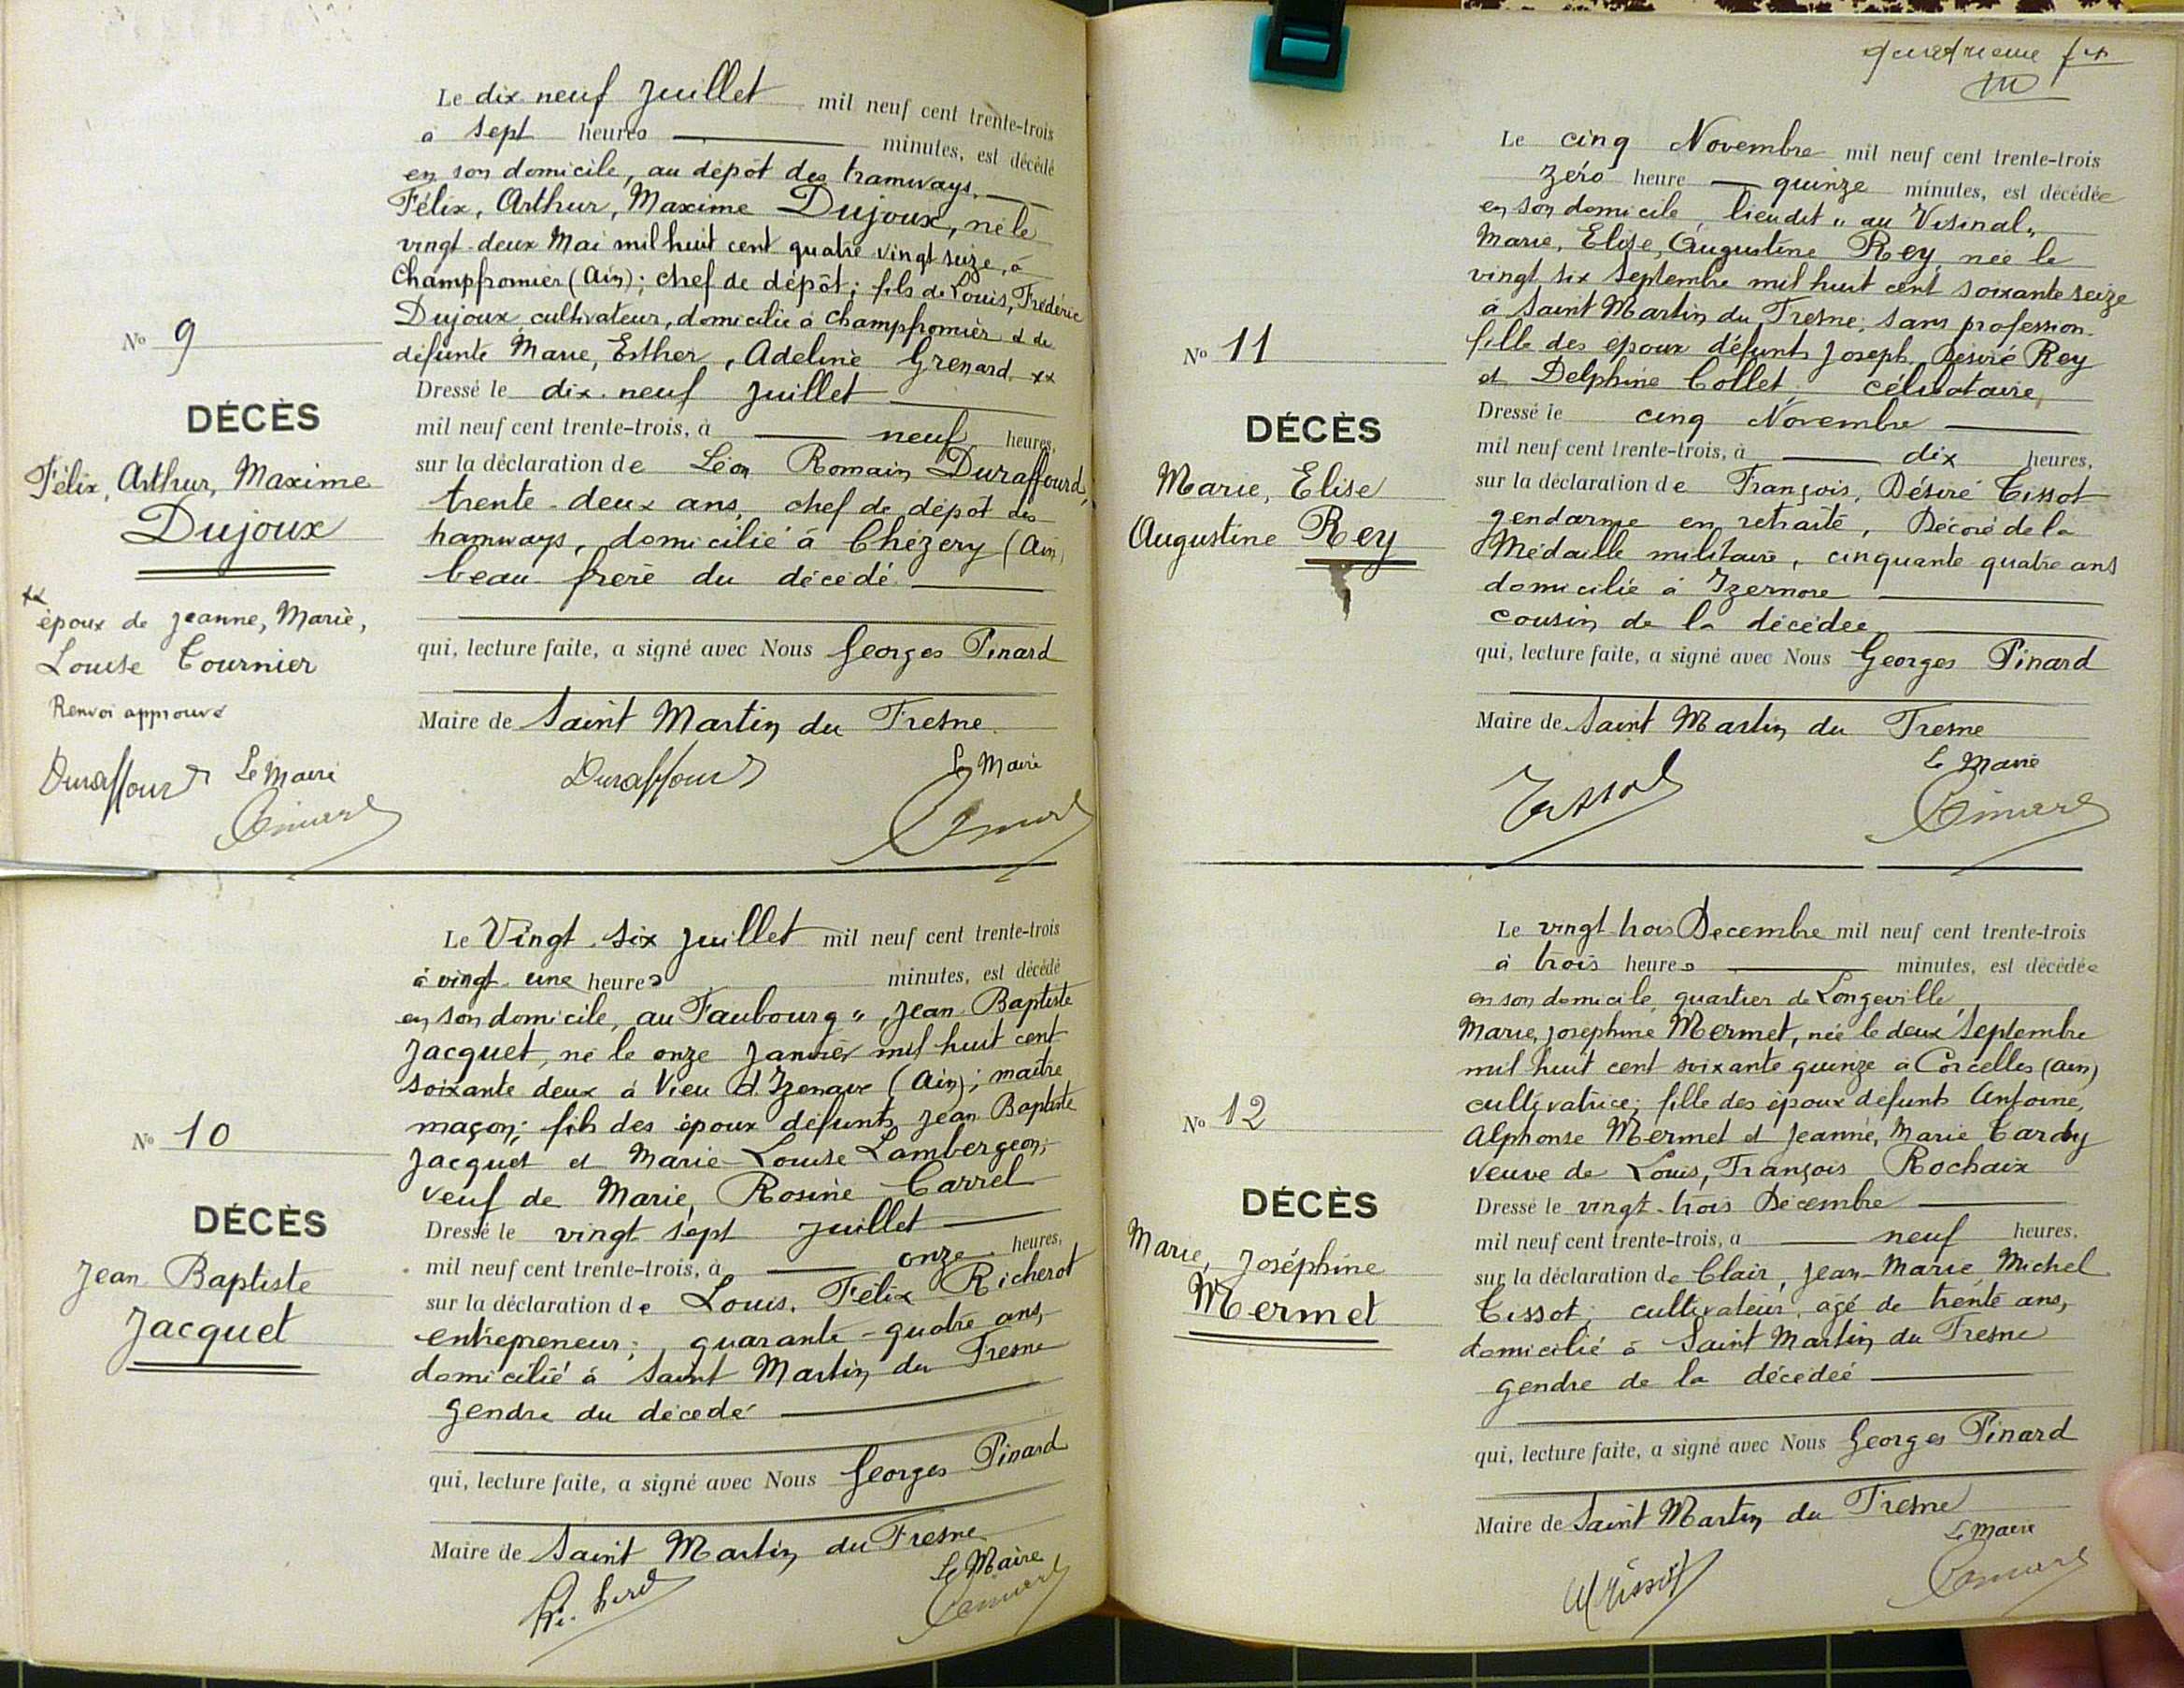 Le dix neuf Juillet mil neuf cent trente-trois
à sept heures minutes, est décédé
en son domicile, au dépôt des tramways,
Félix, Arthur, Maxime Dujoux, né le
vingt-deux Mai mil huit cent quatre vingt seize, à
Champfromier (Ain); chef de dépôt; fils de Louis, Frédéric
Dujoux cultivateur, domicilié à Champfromier et de
défunte Marie, Esther, Adeline Grenard xx
Dressé le dix-neuf Juillet
mil neuf cent trente-trois, à neuf heures,
sur la déclaration de Léon Romain Duraffourd,
trente-deux ans, chef de dépôt des
tramways, domicilié à Chézery (Ain)
beau-frère du décédé
qui, lecture faite, a signé avec Nous Georges Pinard
Maire de Saint Martin du Fresne
Duraffourd Le Maire
Pinard
No 9
DÉCÈS
Félix, Arthur, Maxime
Dujoux
xx
époux de Jeanne, Marie,
Louise Tournier
Renvoi approuvé
Duraffourd Le Maire
Pinard
Le Vingt-six Juillet mil neuf cent trente-trois
à vingt-une heures minutes, est décédé
en son domicile, au Faubourg ", Jean-Baptiste
Jacquet, né le onze Janvier mil huit cent
soixante deux à Vieu d'Izenave (Ain); maître
maçon; fils des époux défunts Jean-Baptiste
Jacquet et Marie-Louise Lambergeon;
veuf de Marie, Rosine Carrel
Dressé le vingt sept Juillet
mil neuf cent trente-trois, à onze heures,
sur la déclaration de Louis, Félix Richerot
entrepreneur; quarante-quatre ans,
domicilié à Saint Martin du Fresne
gendre du décédé
qui, lecture faite, a signé avec Nous Georges Pinard
Maire de Saint Martin du Fresne
Le Maire
Pinard
No 10
DÉCÈS
Jean Baptiste
Jacquet
Le cinq Novembre mil neuf cent trente-trois
zéro heure quinze minutes, est décédée
en son domicile, lieudit "au Visinal"
Marie, Elise, Augustine Rey, née le
vingt six Septembre mil huit cent soixante seize
à Saint Martin du Fresne; sans profession.
fille des époux défunts Joseph, Désiré Rey
et Delphine Collet. célibataire,
Dressé le cinq Novembre
mil neuf cent trente-trois, à dix heures,
sur la déclaration de François, Désiré Tissot
gendarme en retraite, Décoré de la
Médaille militaire, cinquante quatre ans
domicilié à Izernore
cousin de la décédée
qui, lecture faite, a signé avec Nous Georges Pinard
Maire de Saint Martin du Fresne
Le Maire
Tissot Pinard
No 11
DÉCÈS
Marie, Elise
Augustine Rey
Le vingt-trois Decembre mil neuf cent trente-trois
à trois heures minutes, est décédée
en son domicile, quartier de Longeville,
Marie, Joséphine Mermet, née le deux Septembre
mil huit cent soixante quinze à Corcelles (Ain)
cultivatrice; fille des époux défunts Antoine,
Alphonse Mermet et Jeanne, Marie Tardy
veuve de Louis, François Rochaix
Dressé le vingt-trois Décembre
mil neuf cent trente-trois, à neuf heures,
sur la déclaration de Clair, Jean-Marie, Michel
Tissot; cultivateur, âgé de trente ans,
domicilié à Saint Martin du Fresne
gendre de la décédée
qui, lecture faite, a signé avec Nous Georges Pinard
Maire de Saint Martin du Fresne
Le Maire
Tissot Pinard
No 12
DÉCÈS
Marie, Joséphine
Mermet